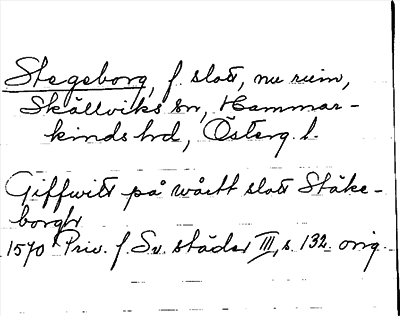 Stegeborg, f. slott, nu ruin,
Skällviks sn, Hammar-
kinds hd, Österg. l.
Giffwitt på wårtt slott Stäke-
borgh
1570 Priv. f. Sv. städer III, s. 132 orig.